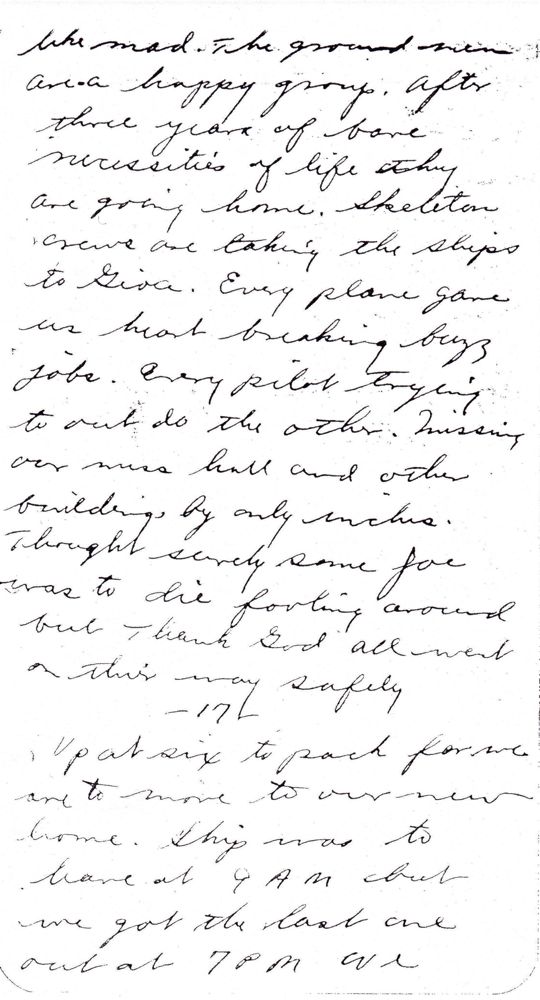 like mad. The ground men
are a happy group. After
three years of bare
necessities of life they
are going home. Skeleton
crews are taking the ships
to Gioia. Every plane gave
us heart breaking buzz
jobs. Every pilot trying
to out do the other. Missing
our mess hall and other
buildings by only inches.
Thought surely some Joe
was to die fooling around
but Thank God all went
on their way safely
-17-
Up at six to pack for we
are to move to our new
home. Ship was to
leave at 9 AM but
we got the last one
out at 7 PM We